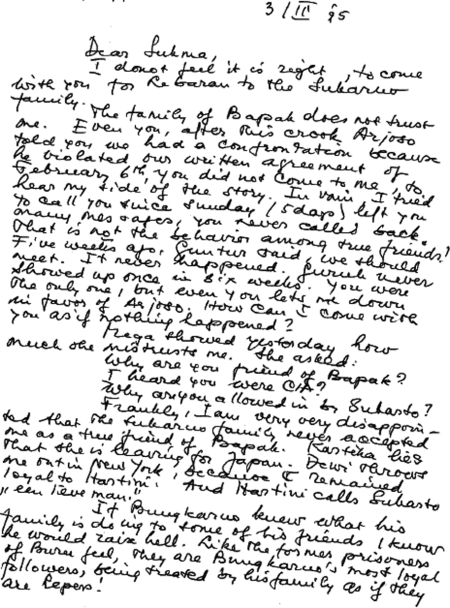 3/II 95
Dear Sukma,
I donot feel it is right, to come
with you for Lebaran to the Sukarno
family.
The family of Bapak does not trust
me. Even you, after this crook Arjoso
told you we had a confrontation because
he violated our written agreement of
February 6th, you did not come to me, to
hear my side of the story. In vain I tried
to call you since Sunday (5 days) left you
many messages, you never called back.
That is not the behavior among true friends!
Five weeks ago, Guntur said, we should
meet. It never happened. Guruh never
showed up once in six weeks. You were
the only one, but even you lets me down
in favor of Arjoso. How can I come with
you as if nothing happened?
Mega showed yesterday how
much she mistrusts me. She asked:
Why are you friend of Bapak?
I heard you were CIA?
Why are you allowed in by Suharto?
Frankly, I am very very disappoin-
ted that the Sukarno family never accepted
me as a true friend of Bapak. Kartika lies
that she is leaving for Japan. Dewi throws
me out in New York, because I remained
loyal to Hartini. And Hartini calls Suharto
„een lieve man."
If Bung Karno knew what his
family is doing to some of his friends I know
he would raise hell. Like the former prisoners
of Buru feel, they are Bung Karno's most loyal
followers, being treated by his family as if they
are lepers!